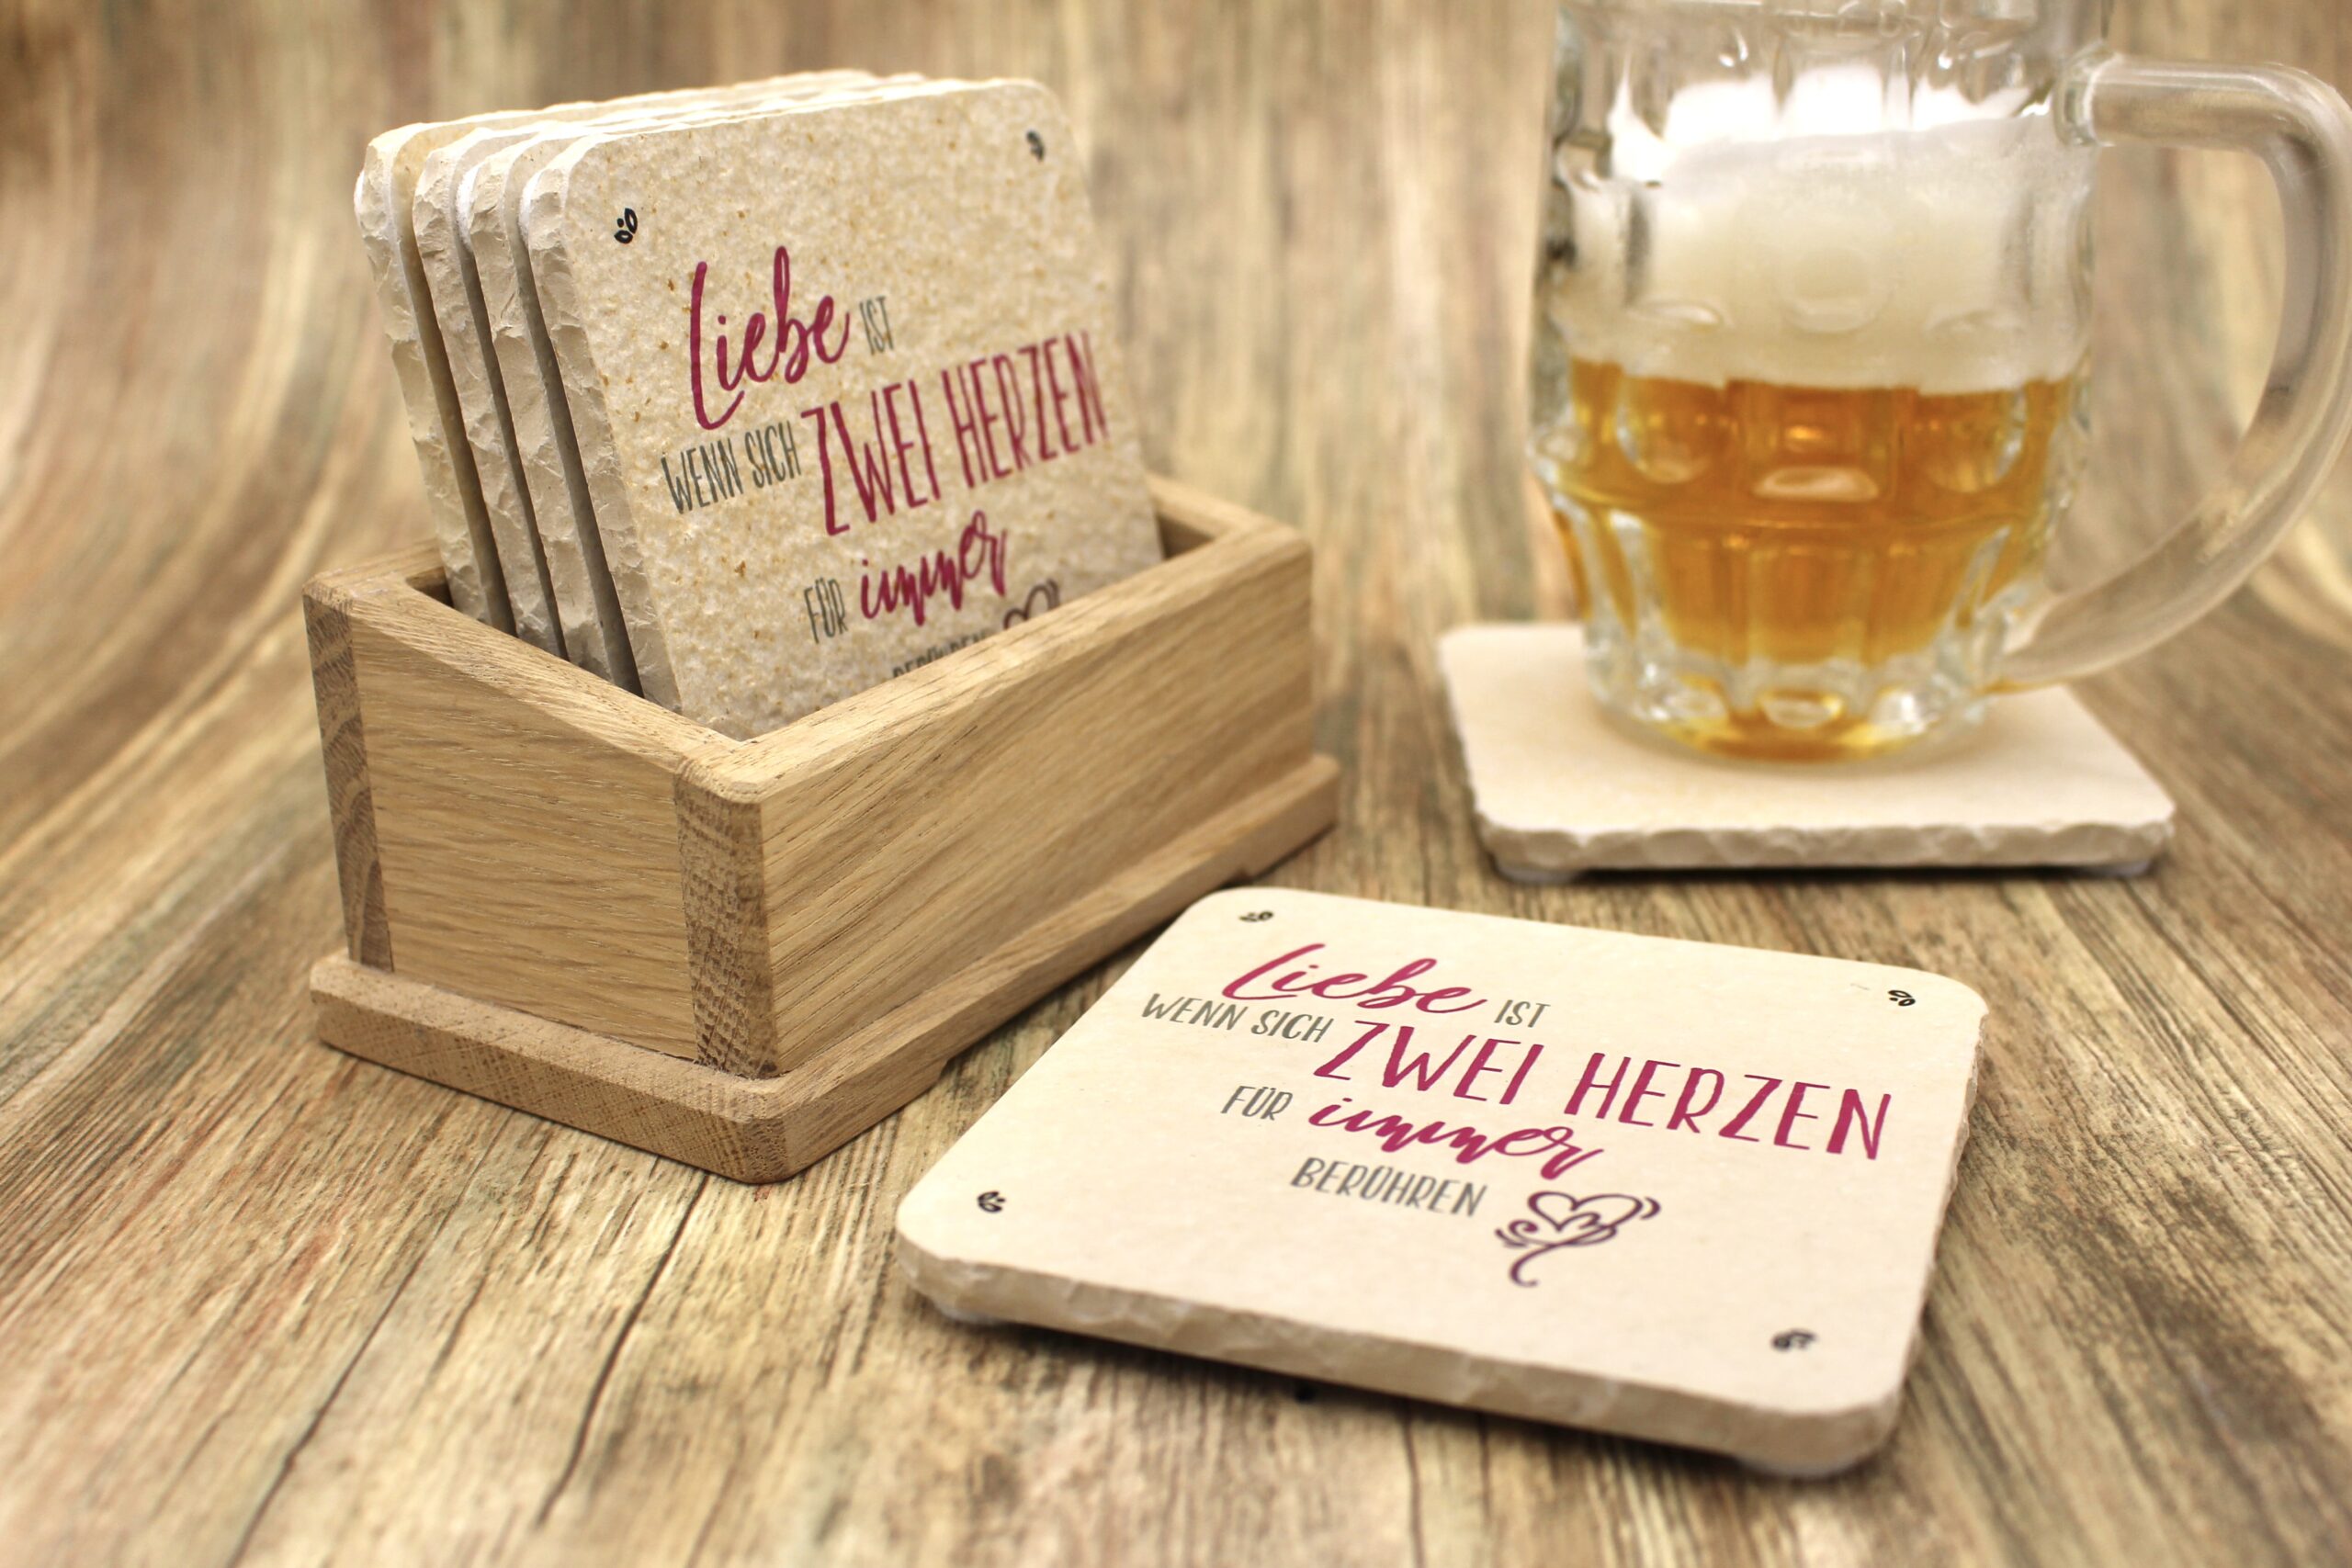 Liebe IST
WENN SICH ZWEI HERZEN
FÜR immer
BERÜHREN
Liebe IST
WENN SICH ZWEI HERZEN
FÜR immer
BERÜHREN